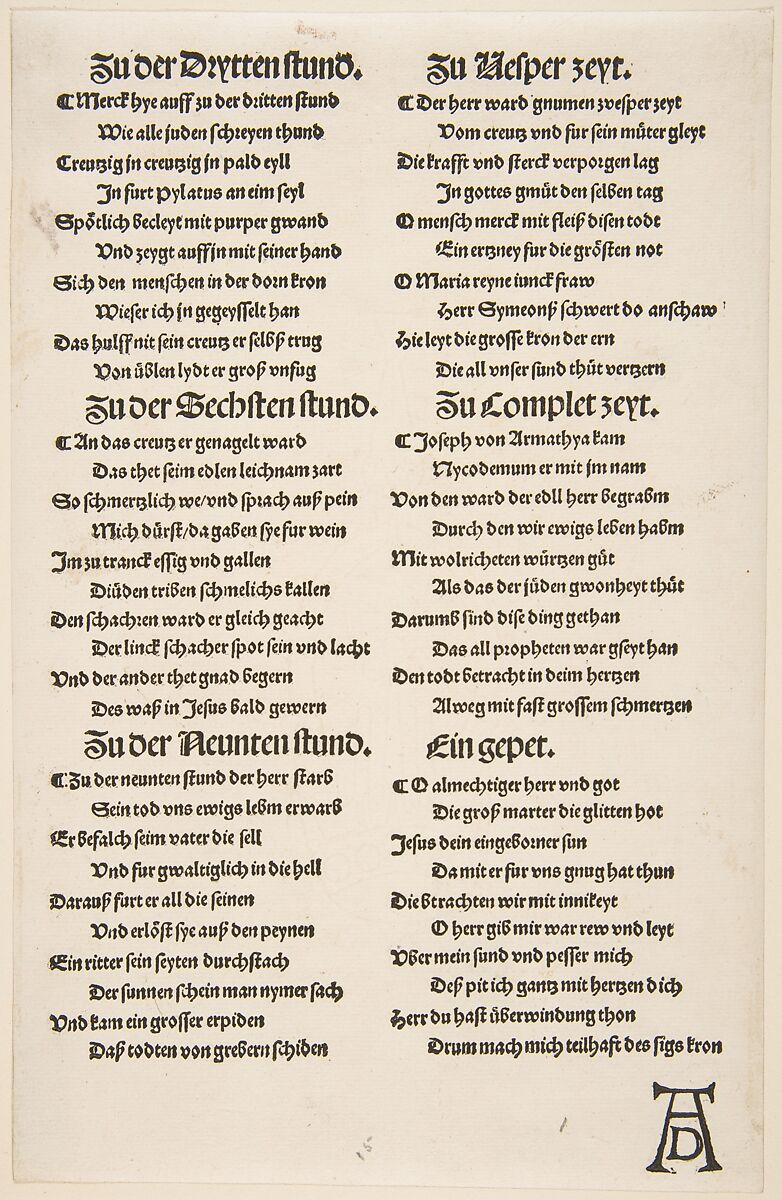 Zu der Drytten stund.
¶ Merck hye auff zu der dritten stund
Wie alle juden schreyen thund
Creutzig jn creutzig jn pald eyll
Jn furt Pylatus an eim seyl
Spötlich becleyt mit purper gwand
Vnd zeygt auff jn mit seiner hand
Sich den menschen in der dorn kron
Wie ser ich jn gegeysselt han
Das hulff nit sein creutz er selbß trug
Von üblen lydt er groß vnfug
Zu der Sechsten stund.
¶ An das creutz er genagelt ward
Das thet seim edlen leichnam zart
So schmertzlich we/vnd sprach auß pein
Mich dürst/da gaben sye fur wein
Jm zu tranck essig vnd gallen
Die üden triben schmelichs kallen
Den schachren ward er gleich geacht
Der linck schacher spot sein vnd lacht
Vnd der ander thet gnad begern
Des waß in Jesus bald gewern
Zu der Neunten stund.
¶ Zu der neunten stund der herr starb
Sein tod vns ewigs lebm erwarb
Er befalch seim vater die sell
Vnd fur gwaltiglich in die hell
Darauß furt er all die seinen
Vnd erlöst sye auß den peynen
Ein ritter sein seyten durchstach
Der sunnen schein man nymer sach
Vnd kam ein grosser erpiden
Daß todten von grebern schiden
Zu Vesper zeyt.
¶ Der herr ward gnumen zvesper zeyt
Vom creutz vnd fur sein mùter gleyt
Die krafft vnd sterck verporgen lag
Jn gottes gmüt den selben tag
O mensch merck mit fleiß disen todt
Ein ertzney fur die grösten not
O Maria reyne iunck fraw
Herr Symeonß schwert do anschaw
Hie leyt die grosse kron der ern
Die all vnser sund thùt vertzern
Zu Complet zeyt.
¶ Joseph von Armathya kam
Nycodemum er mit jm nam
Von den ward der edll herr begrabm
Durch den wir ewigs leben habm
Mit wolricheten würtzen gùt
Als das der jüden gwonheyt thùt
Darumb sind dise ding gethan
Das all propheten war gseyt han
Den todt betracht in deim hertzen
Alweg mit fast grossem schmertzen
Ein gepet.
¶ O almechtiger herr vnd got
Die groß marter die glitten hot
Jesus dein eingeborner sun
Da mit er fur vns gnug hat thun
Die btrachten wir mit innikeyt
O herr gib mir war rew vnd leyt
Vber mein sund vnd pesser mich
Deß pit ich gantz mit hertzen dich
Herr du hast überwindung thon
Drum mach mich teilhaft des sigs kron
AD
15
1